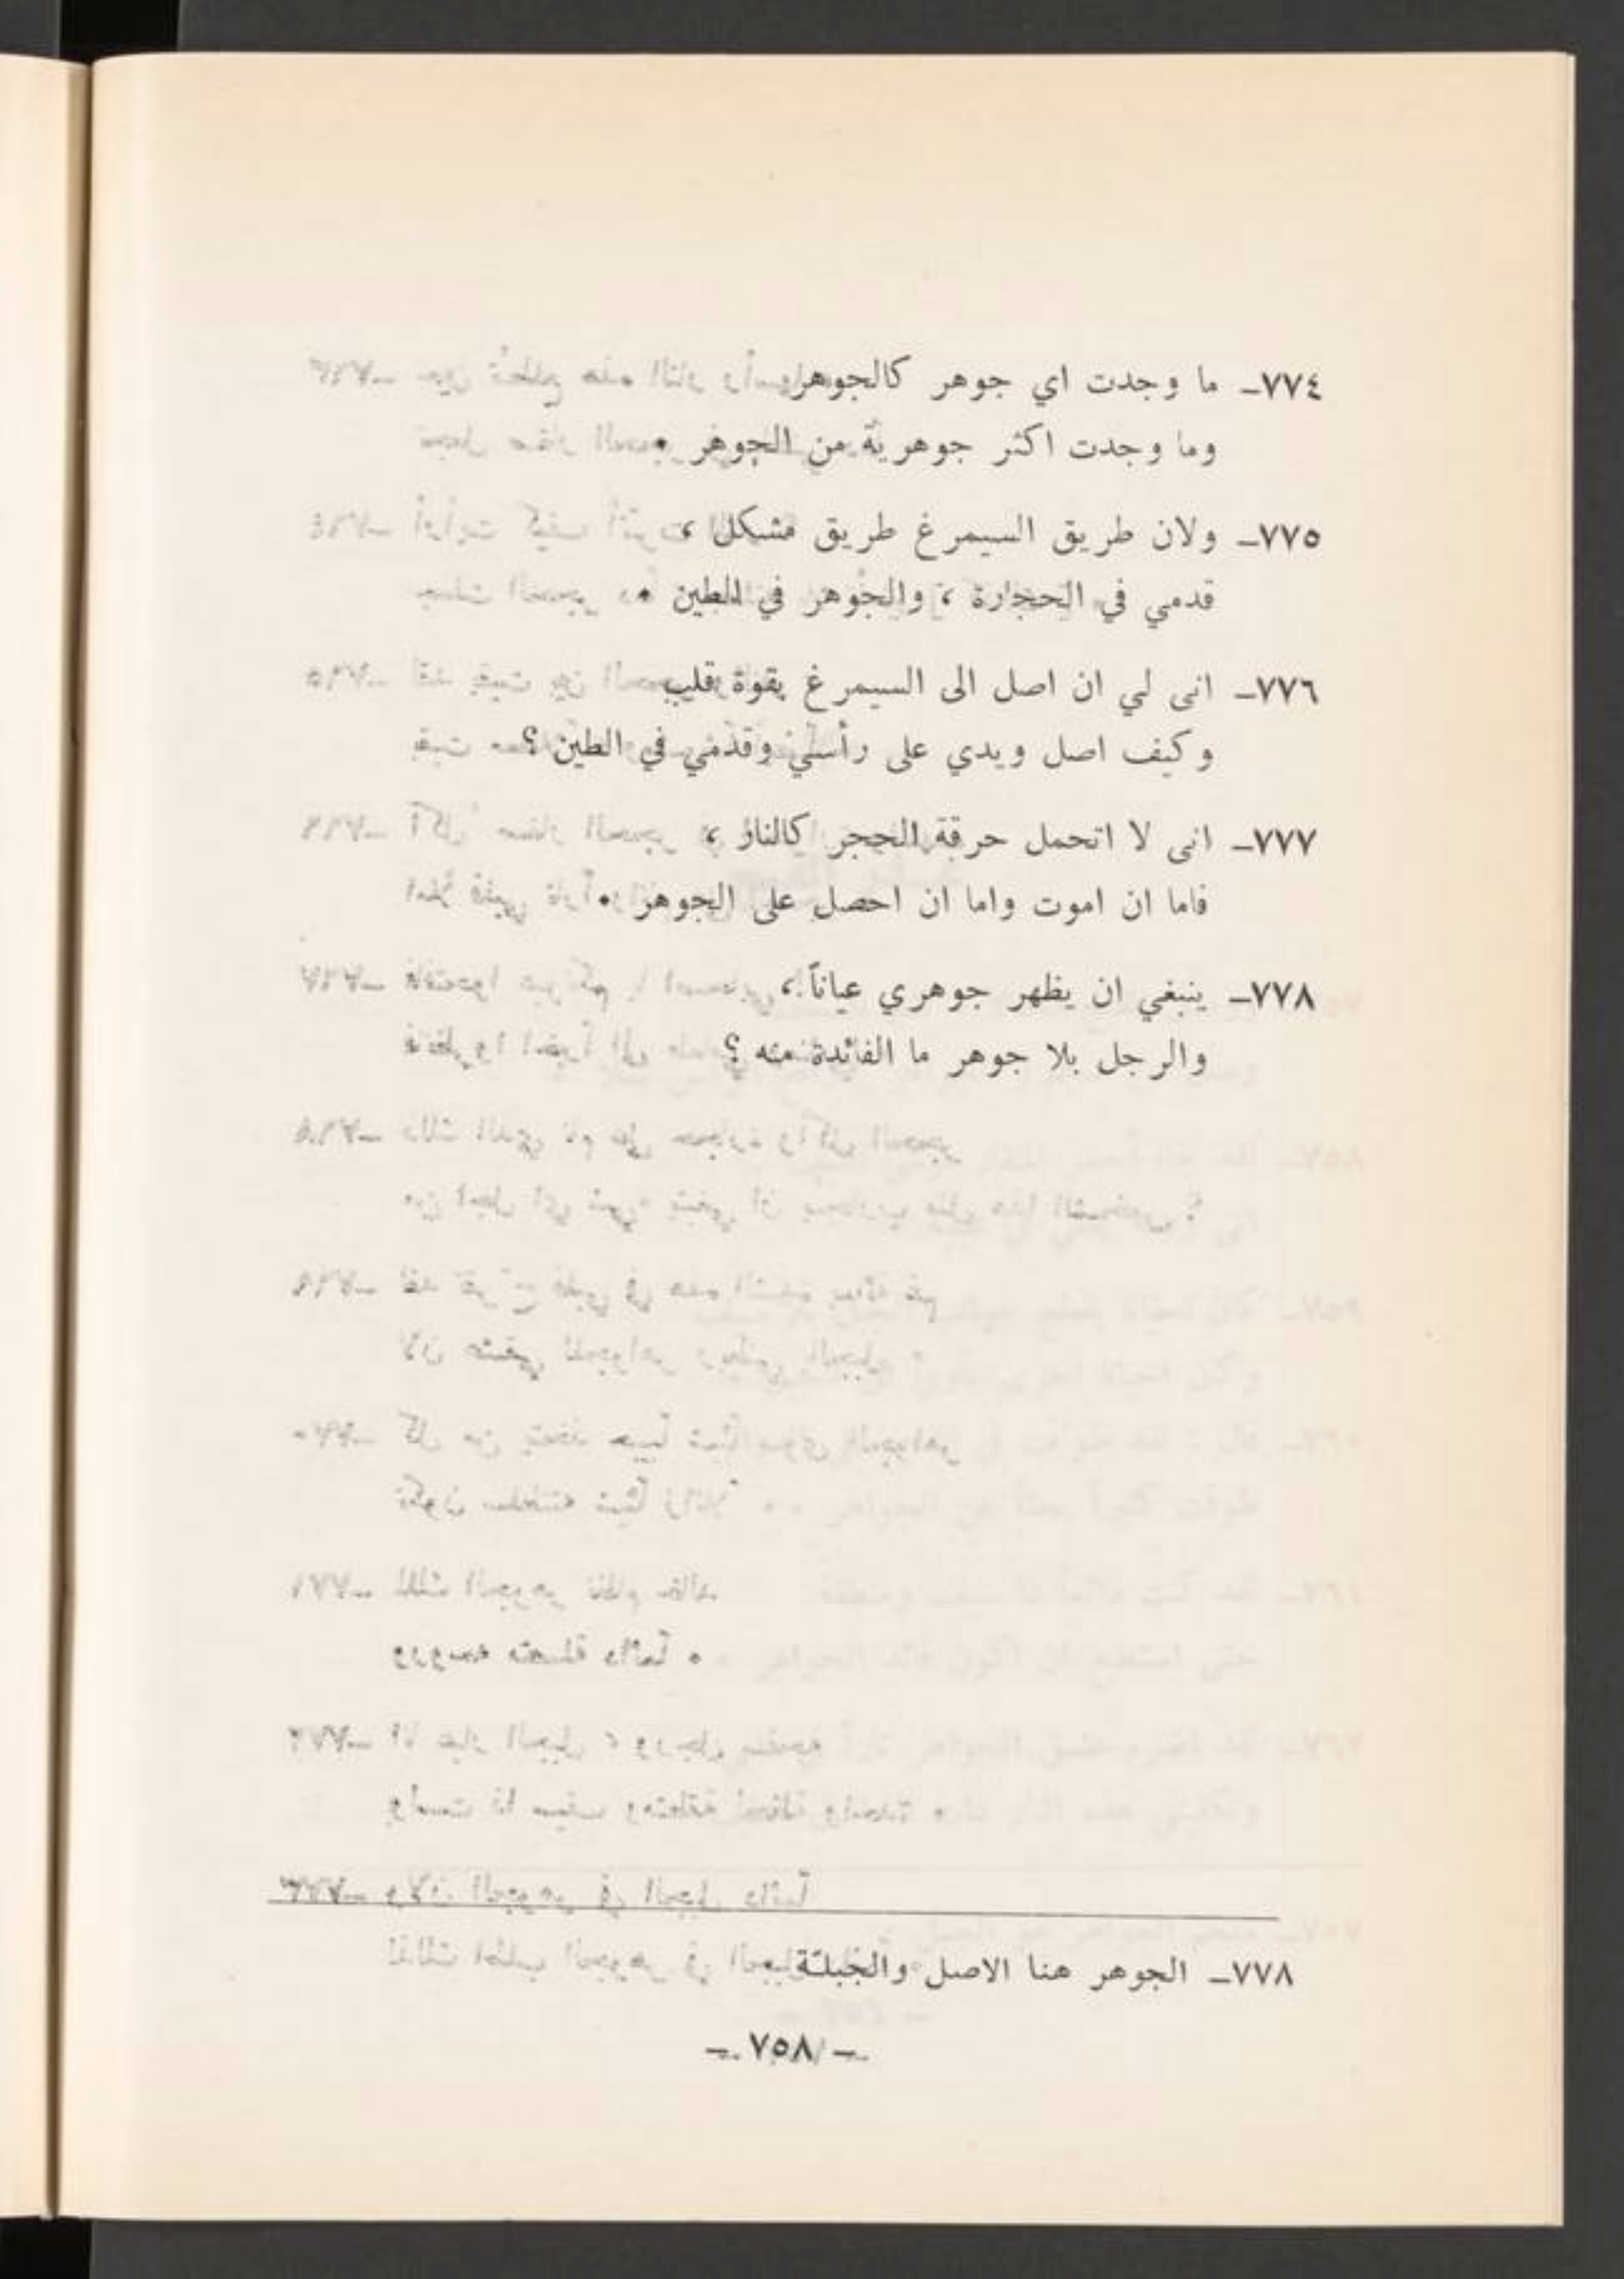 ٧٧٤ــ ما وجدت اي جوهر كالجوهر
وما وجدت اكثر جوهرية من الجوهر ٠
٧٧٥ــ ولان طريق السيمرغ طريق مشكل ،
قدمي في الحجارة ، والجوهر في الطين ٠
٧٧٦ــ انى لي ان اصل الى السيمرغ بقوة قلب
وكيف اصل ويدي على رأسي وقدمي في الطين ؟
٧٧٧ــ انى لا اتحمل حرقة الحجر كالنار ،
فاما ان اموت واما ان احصل على الجوهر ٠
٧٧٨ــ ينبغي ان يظهر جوهري عياناً ،
والرجل بلا جوهر ما الفائدة منه ؟
٧٧٨ــ الجوهر هنا الاصل والجبلة
ــ ٧٥٨ ــ